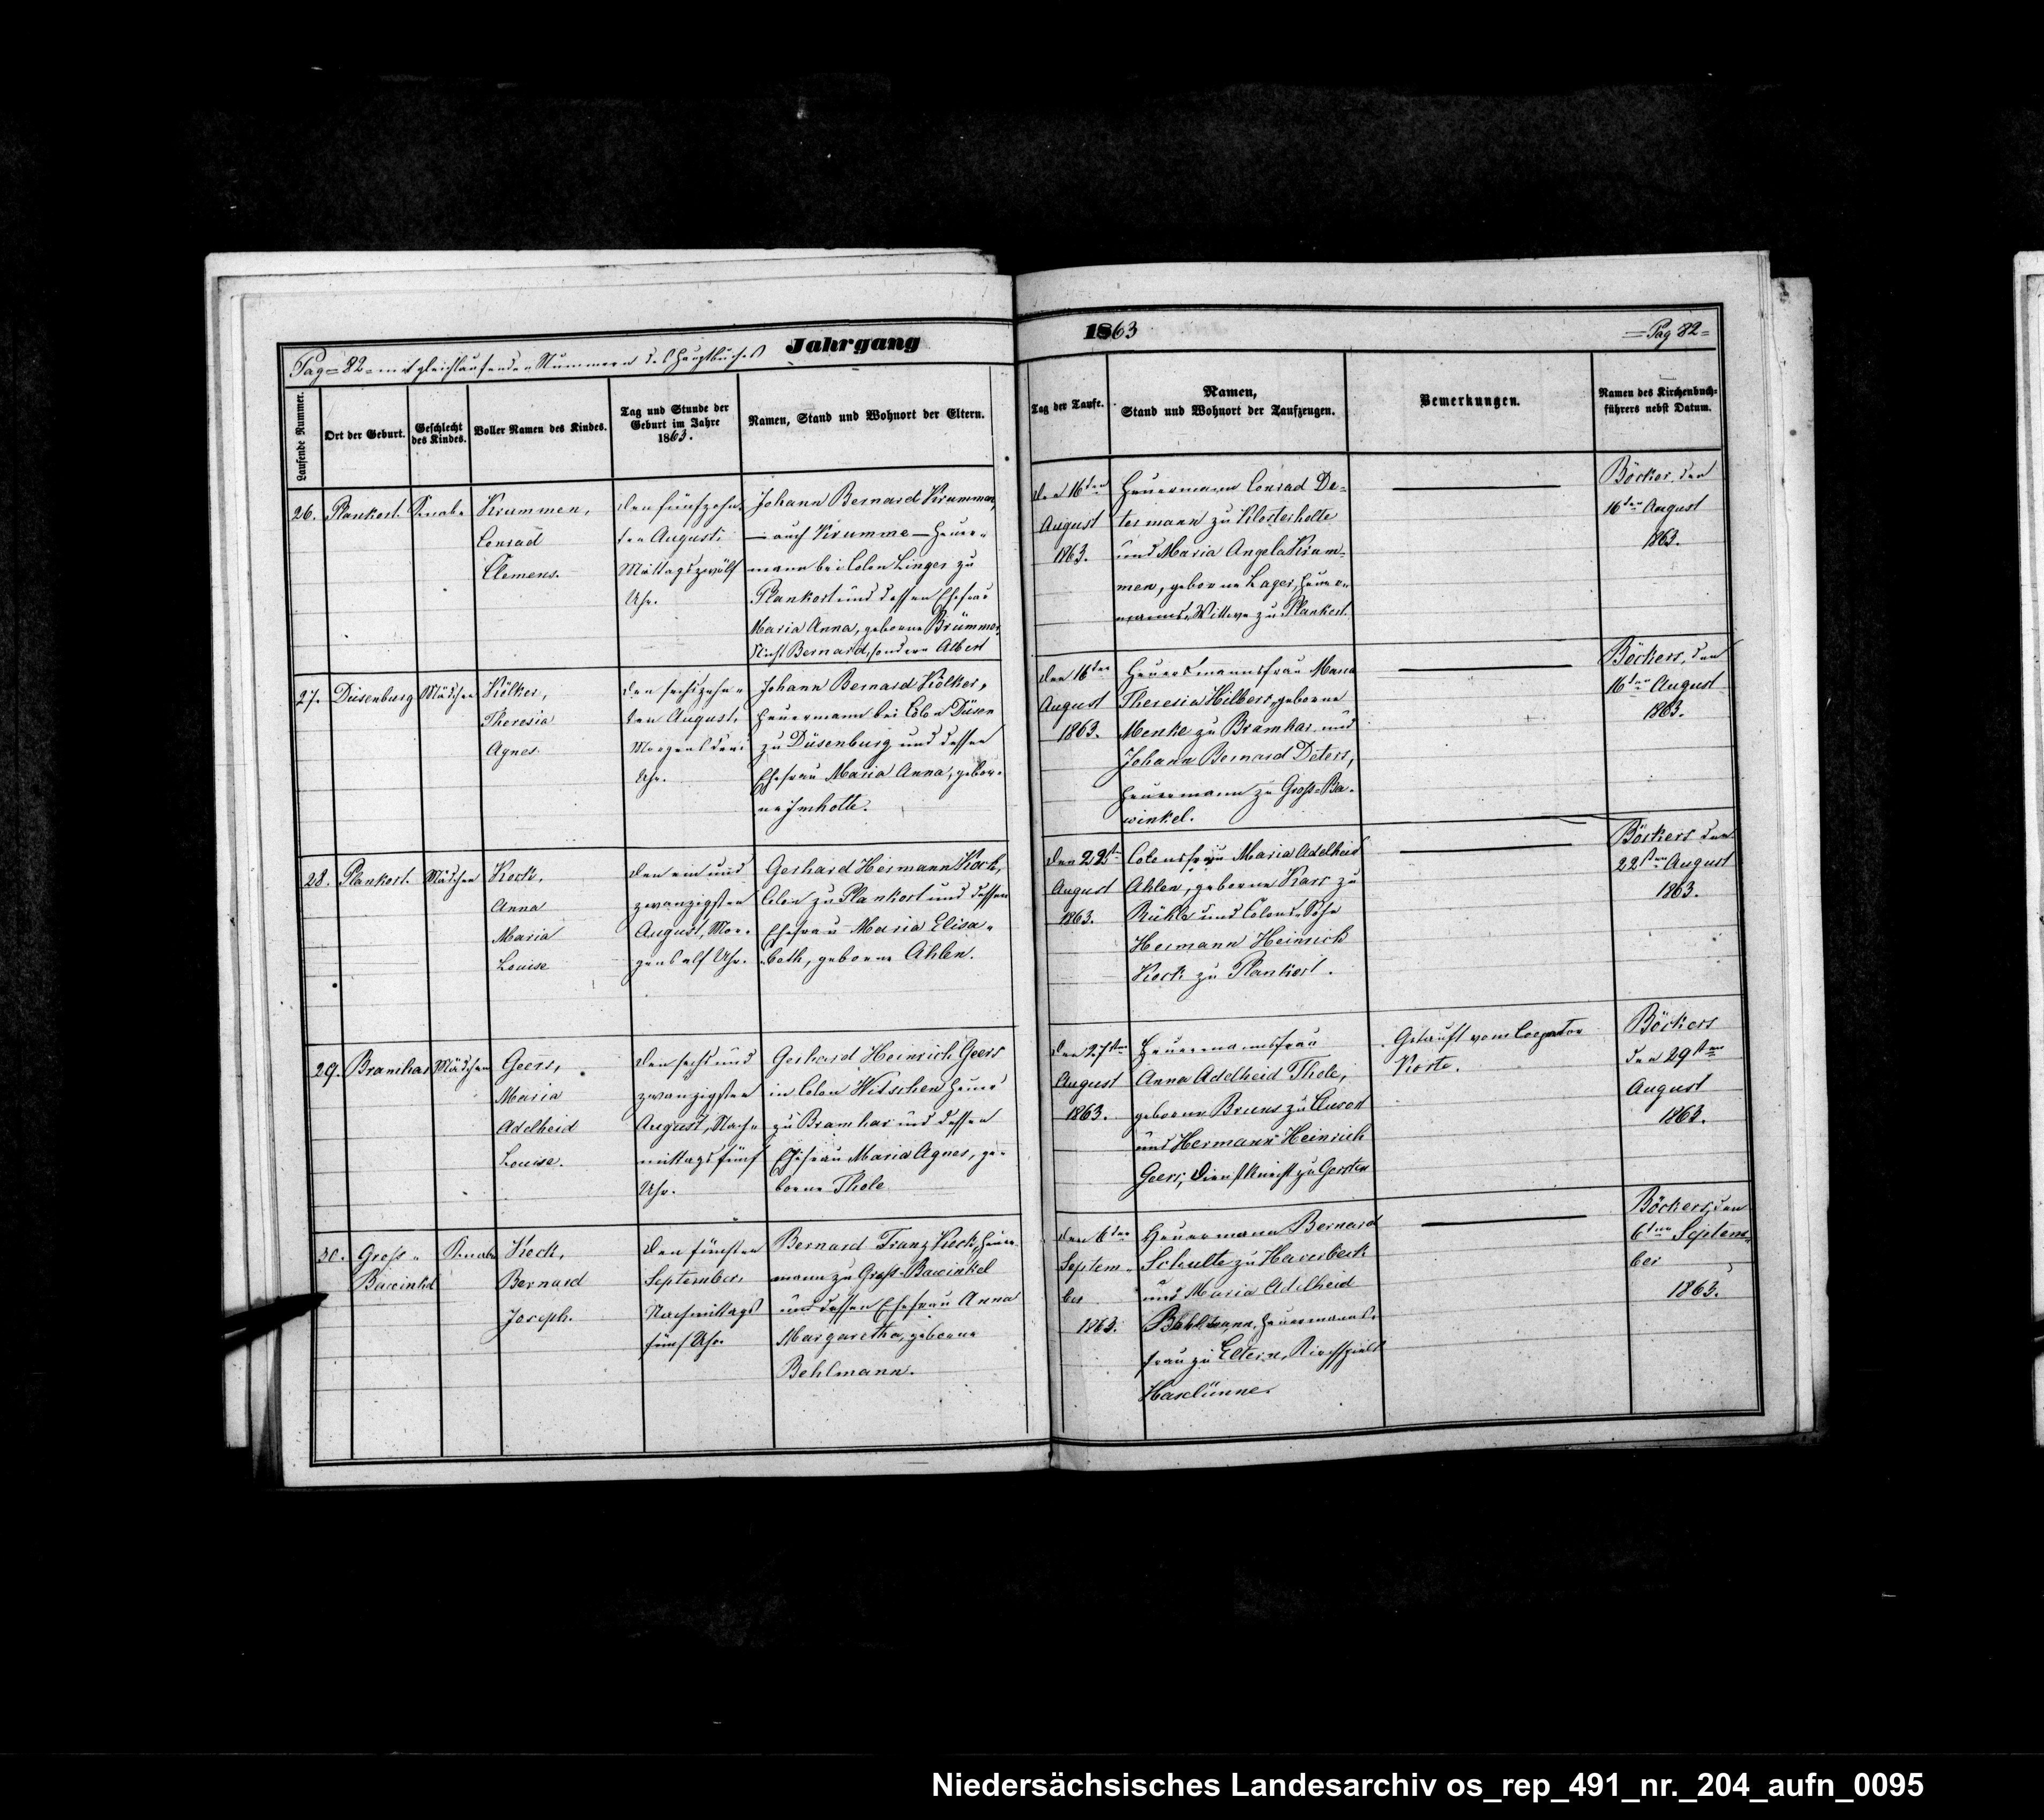 Jahrgang
1863
Pag = 82 = mit gleichlaufenden Nummern des Hauptbuches
= Pag 82 =
Laufende Nummer.
Ort der Geburt.
Geschlecht
des Kindes.
Voller Namen des Kindes.
Tag und Stunde der
Geburt im Jahre
1863.
Namen, Stand und Wohnort der Eltern.
Tag der Taufe.
Namen,
Stand und Wohnort der Taufzeugen.
Bemerkungen.
Namen des Kirchenbuch-
führers nebst Datum.
26.
Plankort.
Knabe
Krummen,
Conrad
Clemens.
den fünfzehn-
ten August,
Mittags zwölf
Uhr.
Johann Bernard Krummen,
— auch Krumme — Heuer-
mann bei Colon Linger zu
Plankort und dessen Ehefrau
Maria Anna, geborne Brümmer,
Nicht Bernard, sondern Albert
den 16ten
August
1863.
Heuermann Conrad De-
termann zu Klosterholte
und Maria Angela Krum-
men, geborne Lager, Heuer-
manns Wittwe zu Plankort.
Böckers, den
16ten August
1863.
27.
Düsenburg
Mädchen
Kölker,
Theresia
Agnes.
den sechszehn-
ten August,
Morgens drei
Uhr.
Johann Bernard Kölker,
Heuermann bei Colon Düsen
zu Düsenburg und dessen
Ehefrau Maria Anna, gebor-
ne Imholte.
den 16ten
August
1863.
Heuermannsfrau Maria
Theresia Hilbers, geborne
Menke zu Bramhar und
Johann Bernard Deters,
Heuermann zu Groß-Ba-
winkel.
Böckers, den
16ten August
1863.
28.
Plankort.
Mädchen
Kock,
Anna
Maria
Louise
den ein und
zwanzigsten
August, Mor-
gens elf Uhr.
Gerhard Hermann Kock,
Colon zu Plankort und dessen
Ehefrau Maria Elisa-
beth, geborne Ahlen.
den 22sten
August
1863.
Colonsfrau Maria Adelheid
Ahlen, geborne Karr zu
Rühle und Colons-Sohn
Hermann Heinrich
Kock zu Plankort.
Böckers den
22sten August
1863.
29.
Bramhar
Mädchen
Geers,
Maria
Adelheid
Louise.
den sechs und
zwanzigsten
August, Nach-
mittags fünf
Uhr.
Gerhard Heinrich Geers
in Colon Witschen Heuer
zu Bramhar und dessen
Ehefrau Maria Agnes, ge-
borne Thole
den 27sten
August
1863.
Heuermannsfrau
Anna Adelheid Thole,
geborne Bruns zu
und Hermann Heinrich
Geers, Dienstknecht zu Gersten
Getauft vom Cooperator
Korte.
Böckers
den 29sten
August
1863.
30.
Groß-
Bawinkel
Knabe
Kock,
Bernard
Joseph.
den fünften
September,
Nachmittags
fünf Uhr.
Bernard Franz Kock, Heuer-
mann zu Groß-Bawinkel
und dessen Ehefrau Anna
Margaretha, geborne
Behlmann.
den 6ten
Septem-
ber
1863.
Heuermann Bernard
Schulte zu Haverbeck
und Maria Adelheid
Behlmann, Heuermanns-
frau zu Eltern, Kirchspiels
Haselünne.
Böckers, den
6ten Septem-
ber
1863.
Niedersächsisches Landesarchiv os_rep_491_nr._204_aufn_0095